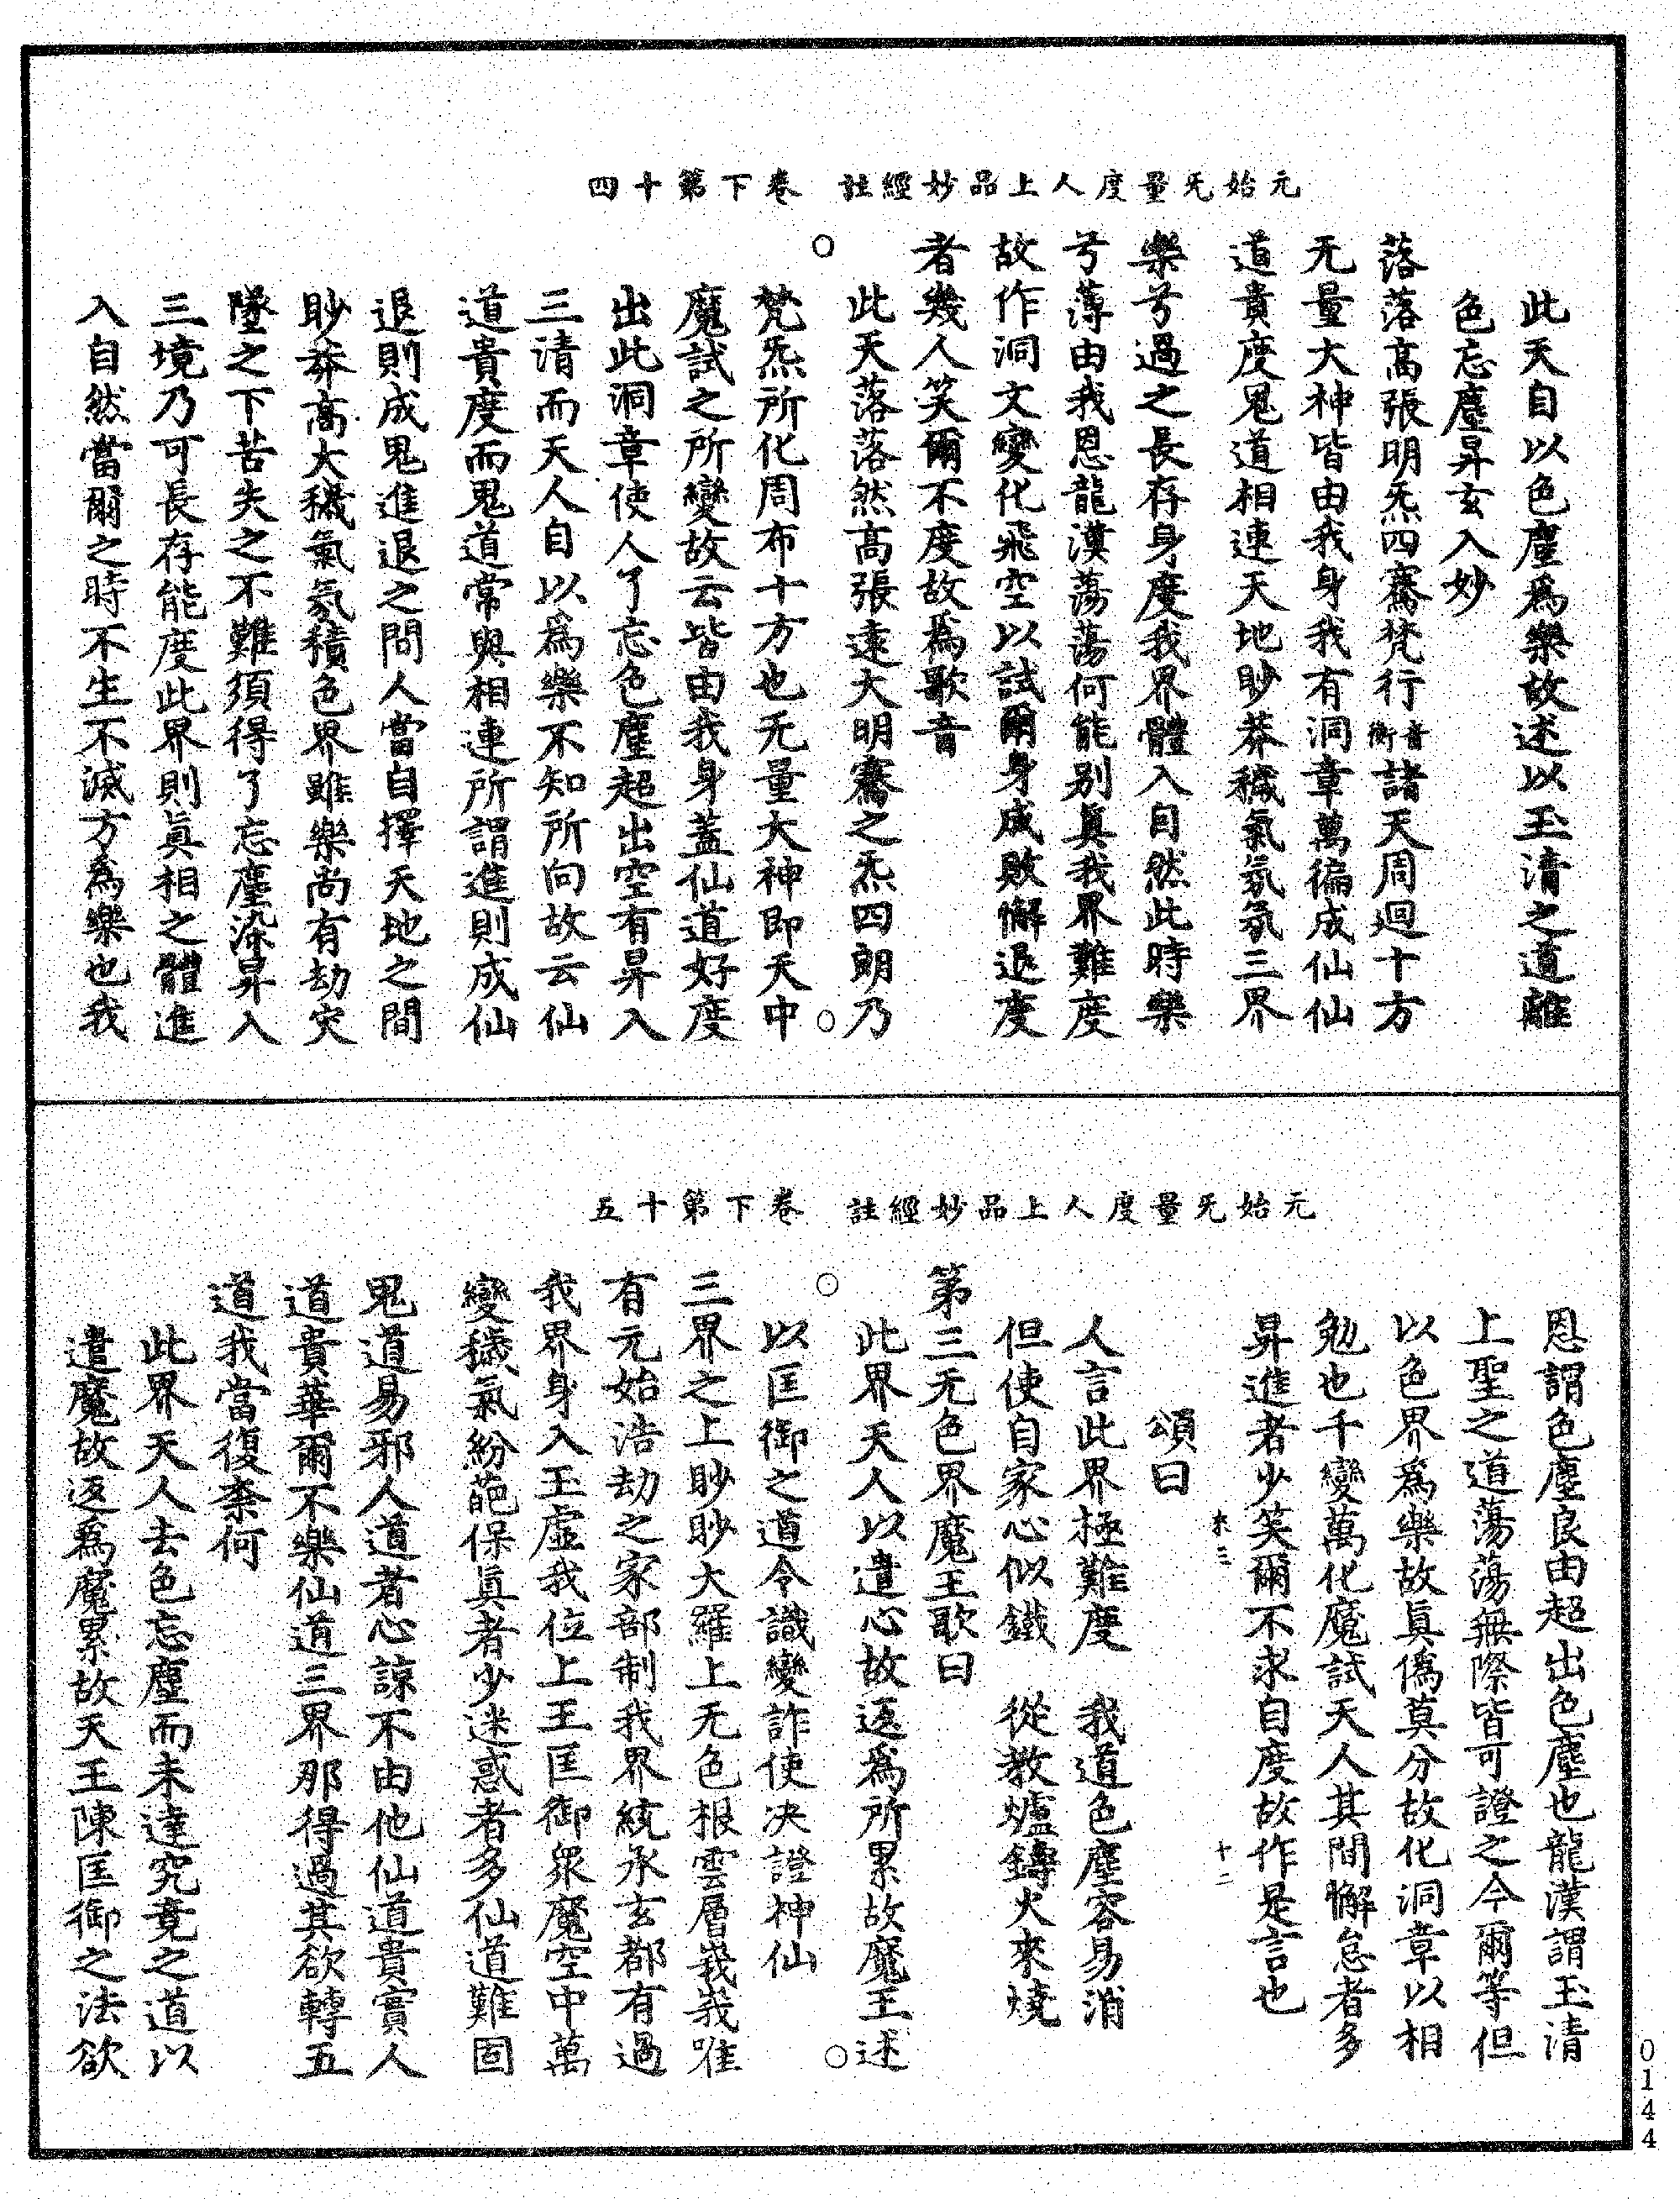 元始旡量度人上品妙經註 卷下第十四
此天自以色塵爲樂故述以玉清之道離
色忘塵昇玄入妙
落落高張明炁四騫梵行音衡諸天周迴十方
无量大神皆由我身我有洞章萬徧成仙仙
道貴度鬼道相連天地眇莽穢氣氛氛三界
樂兮過之長存身度我界體入自然此時樂
兮薄由我恩龍漢蕩蕩何能别眞我界難度
故作洞文變化飛空以試爾身成敗懈退度
者幾人笑爾不度故爲歌音
此天落落然高張遠大明騫之炁四朗乃
梵炁所化周布十方也无量大神即天中
魔試之所變故云皆由我身蓋仙道好度
出此洞章使人了忘色塵超出空有昇入
三清而天人自以爲樂不知所向故云仙
道貴度而鬼道常與相連所謂進則成仙
退則成鬼進退之間人當自擇天地之間
眇莽高大穢氣氛積色界雖樂尚有劫灾
墜之下苦失之不難須得了忘塵染昇入
三境乃可長存能度此界則眞相之體進
入自然當爾之時不生不滅方爲樂也我
元始旡量度人上品妙經註 卷下第十五
恩謂色塵良由超出色塵也龍漢謂玉清
上聖之道蕩蕩無際皆可證之今爾等但
以色界爲樂故眞僞莫分故化洞章以相
勉也千變萬化魔試天人其間懈怠者多
昇進者少笑爾不求自度故作是言也
頌曰
人言此界極難度 我道色塵容易消
但使自家心似鐵 從教爐鑄火來燒
第三无色界魔王歌曰
此界天人以遣心故返爲所累故魔王述
以匡御之道令識變詐使决證神仙
三界之上眇眇大羅上无色根雲層峩峩唯
有元始浩劫之家部制我界統承玄都有過
我界身入玉虛我位上王匡御衆魔空中萬
變穢氣紛葩保眞者少迷惑者多仙道難固
鬼道易邪人道者心諒不由他仙道貴實人
道貴華爾不樂仙道三界那得過其欲轉五
道我當復柰何
此界天人去色忘塵而未達究竟之道以
遣魔故返爲魔累故天王陳匡御之法欲
0144